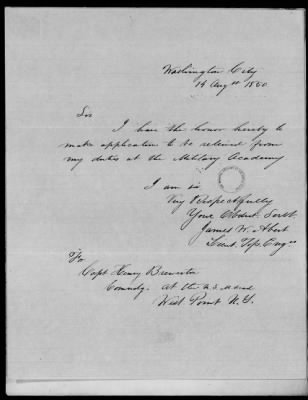 Washington City
14 Augst 1850
Sir
I have the honor hereby to
make application to be relieved from
my duties at the Military Academy
I am sir
Very Respectfully
Your Obdnt. Servt.
James W. Abert
Lieut. Top. Engs
To
Capt Henry Brewerton
Commdg. at the U.S. M. Acad.
West Point N.Y.